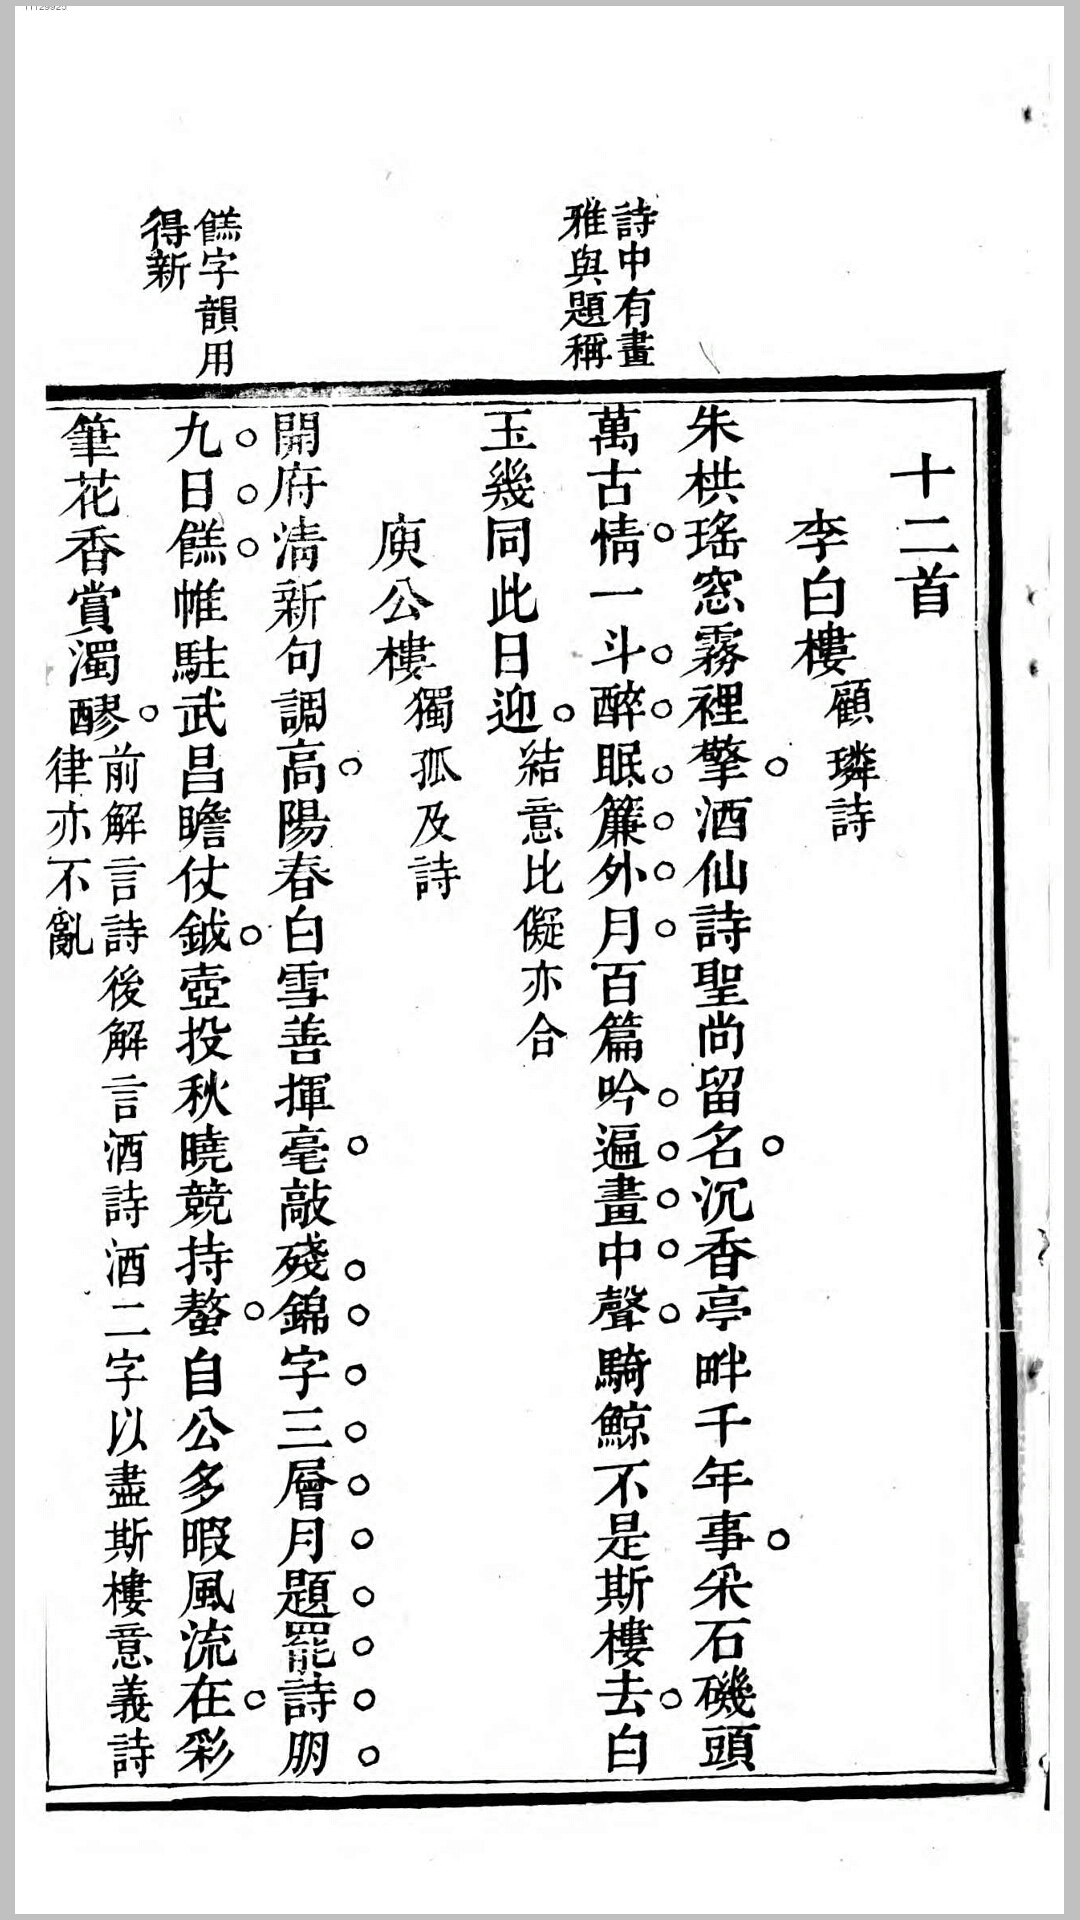 11129925
詩中有畫
雅與題稱
餻字韻用
得新
十二首
李白樓顧璘詩
朱栱瑤窓霧裡擎酒仙詩聖尚留名沉香亭畔千年事采石磯頭
萬古情一斗醉眠簾外月百篇吟遍畫中聲騎鯨不是斯樓去白
玉幾同此日迎結意比儗亦合
庾公樓獨孤及詩
開府清新句調高陽春白雪善揮毫敲殘錦字三層月題罷詩朋
九日餻帷駐武昌瞻仗鉞壺投秋曉競持螯自公多暇風流在彩
筆花香賞濁醪前解言詩後解言酒詩酒二字以盡斯樓意義詩
律亦不亂